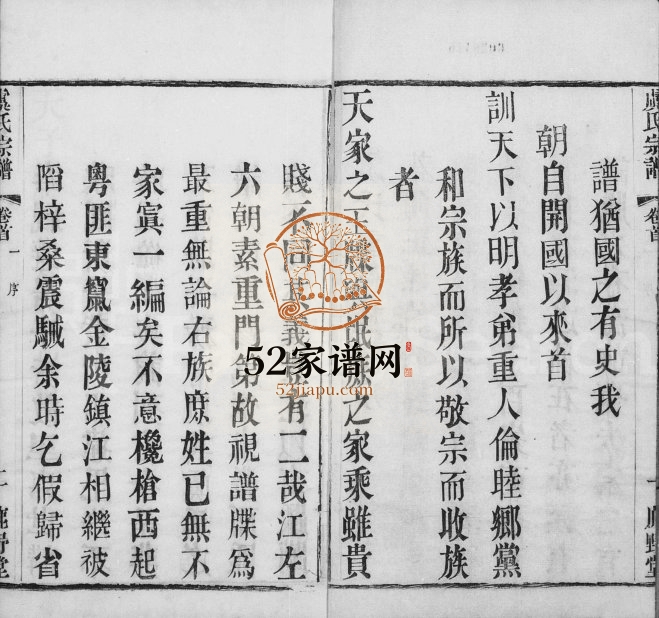 譜猶國之有史我
朝自開國以來首
訓天下以明孝弟重人倫睦鄉黨
和宗族而所以敬宗而收族
者
天家之玉牒與氓族之家乘雖貴
賤不同其義豈有二哉江左
六朝素重門第故視譜牒為
最重無論右族庶姓已無不
家寘一編矣不意欃槍西起
粵匪東竄金陵鎮江相繼被
陷梓桑震駴余時乞假歸省
虞氏宗譜
卷首
一
序
二
鹿野堂
虞氏宗譜
卷首
52家谱网
52jiapu.com